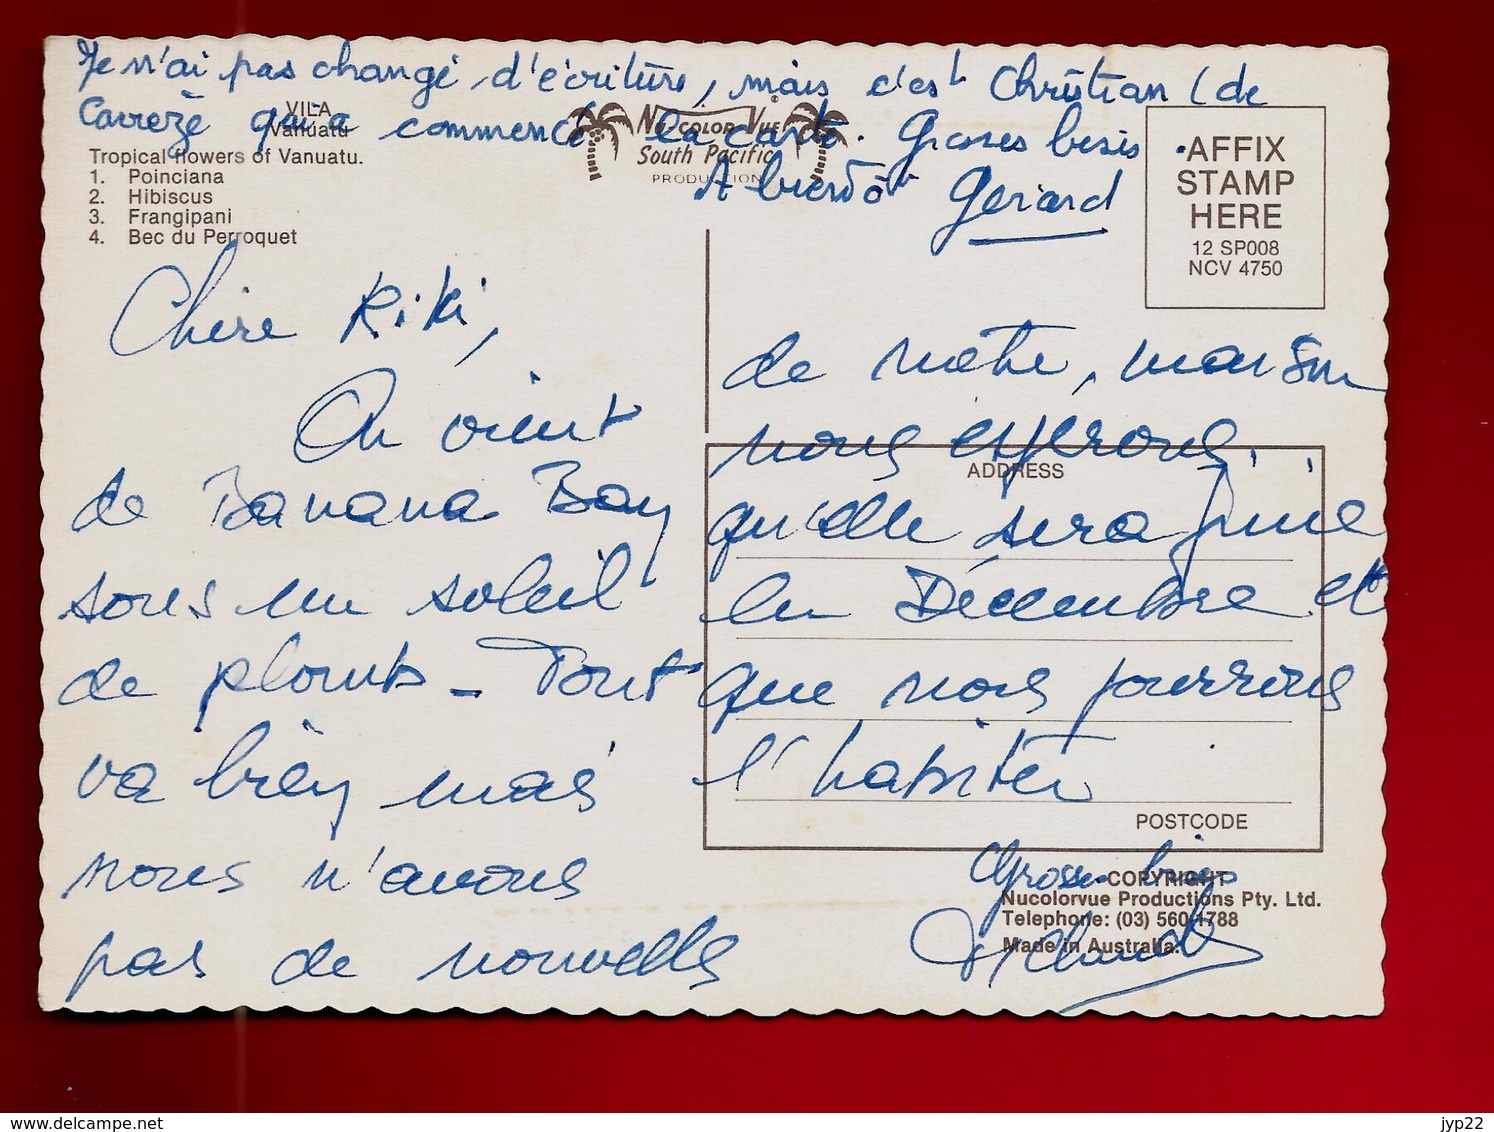 Je n'ai pas changé d'écriture, mais c'est Christian (de
Carreze qui a commencé la carte. Grosses bises
A bientôt Gérard
VILA
Vanuatu
Tropical flowers of Vanuatu.
1. Poinciana
2. Hibiscus
3. Frangipani
4. Bec du Perroquet
NU-COLOR-VUE ®
South Pacific
PRODUCTION
AFFIX
STAMP
HERE
12 SP008
NCV 4750
Chère Kiki,
On vient
de Banana Bay
sous un soleil
de plomb - Tout
va bien mais
nous n'avons
pas de nouvelles
de notre maison
nous espérons
qu'elle sera finie
en Décembre et
que nous pourrons
l'habiter
Grosses bises
ADDRESS
POSTCODE
COPYRIGHT
Nucolorvue Productions Pty. Ltd.
Telephone: (03) 560 1788
Made in Australia.
delcampe.net
jyp22